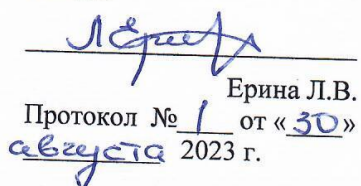 Ерина Л.В.
Протокол № 1 от «30»
августа 2023 г.